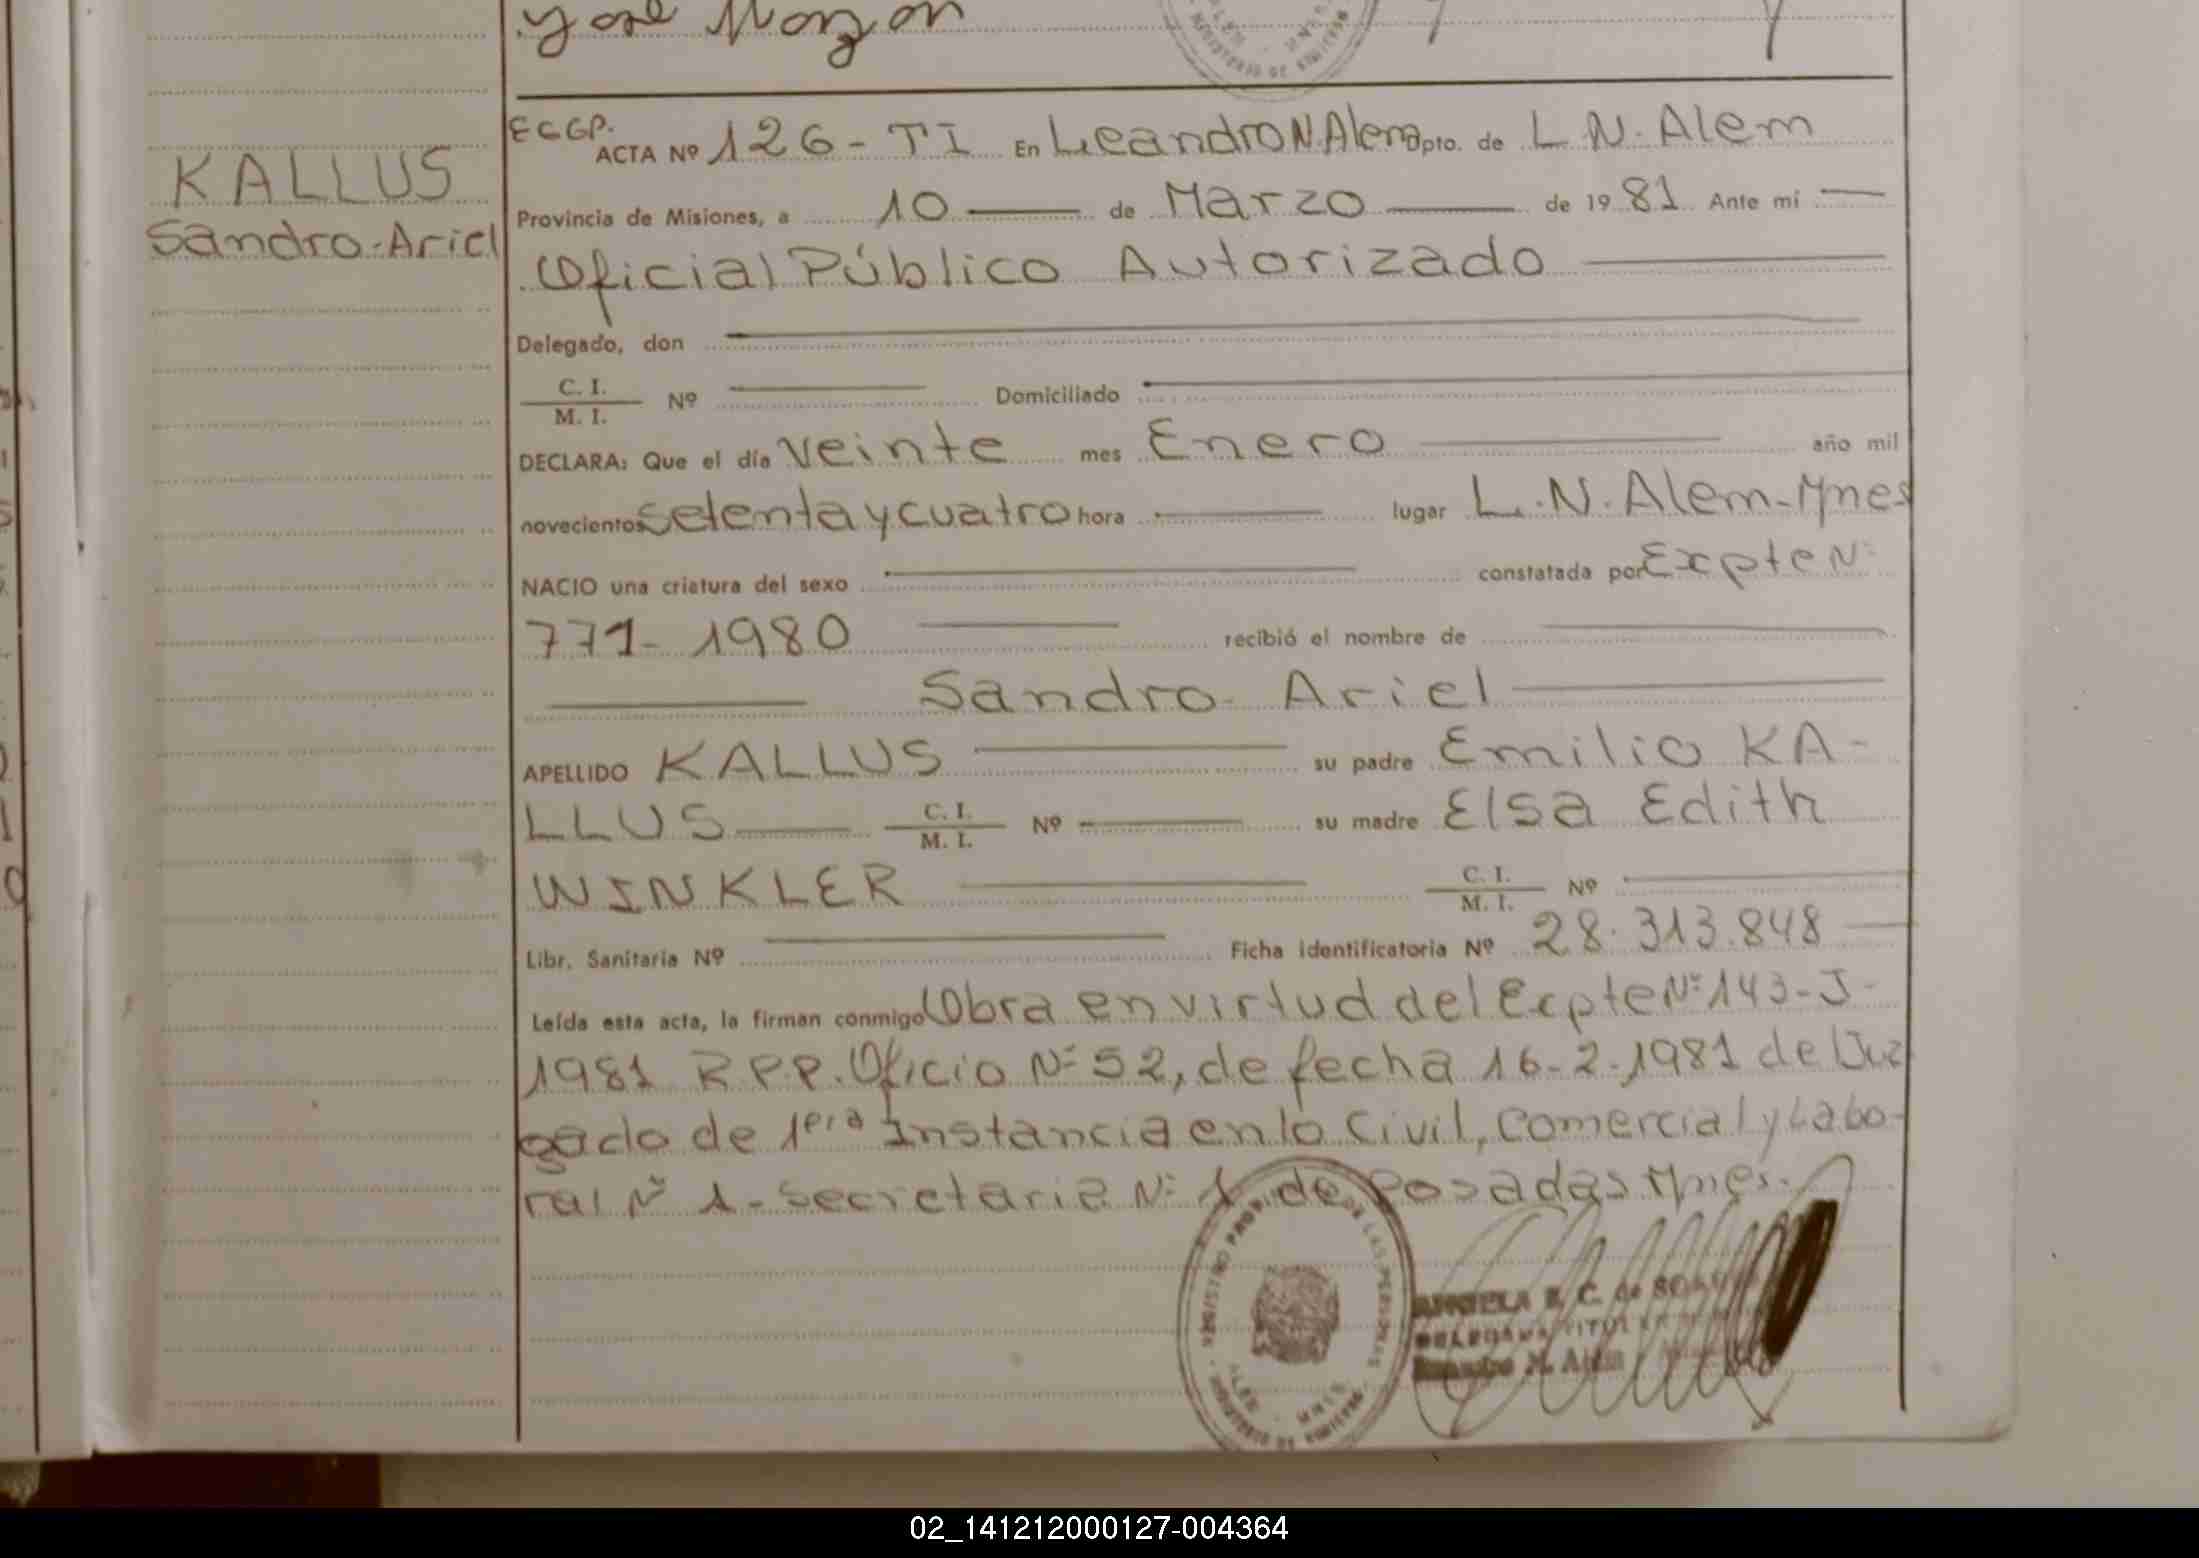 José Monzón
KALLUS
Sandro-Ariel
ECGP.
ACTA Nº 126 - TI En Leandro N. Alem Dpto. de L. N. Alem
Provincia de Misiones, a 10 de Marzo de 1981 Ante mi
Oficial Público Autorizado
Delegado, don
C. I.
M. I. Nº Domiciliado
DECLARA: Que el día Veinte mes Enero año mil
novecientos setenta y cuatro hora lugar L. N. Alem-Mnes
NACIO una criatura del sexo constatada por Expte Nº
771-1980 recibió el nombre de
Sandro Ariel
APELLIDO KALLUS su padre Emilio KA-
LLUS C. I. M. I. Nº su madre Elsa Edith
WINKLER C. I. M. I. Nº
Libr. Sanitaria Nº Ficha identificatoria Nº 28.313.848
Leída esta acta, la firman conmigo Obra en virtud del Ecpte Nº 143-J-
1981 R.P.P. Oficio Nº 52, de fecha 16-2-1981 de Juz
gado de 1era Instancia en lo Civil, Comercial y Labo-
ral Nº 1 - Secretaria Nº 1 de Posadas Mnes.
REGISTRO PROVINCIAL DE LAS PERSONAS
ALEM - MNES
MINISTERIO DE GOBIERNO
ANGELA E. C. de
DELEGADA TITULAR
Leandro N. Alem
02_141212000127-004364